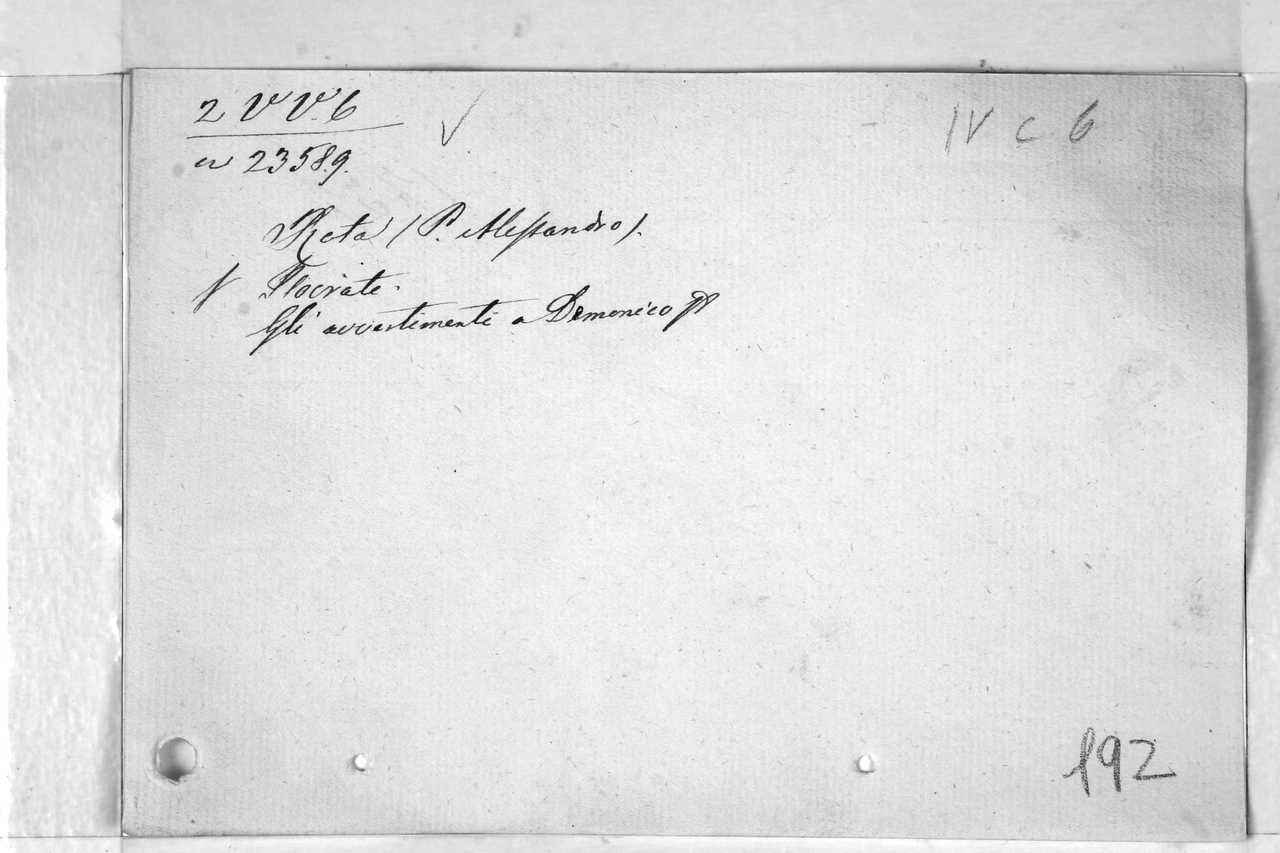 2 V V. 6
IV c 6
in 23589.
Rota (P. Alessandro).
Isocrate.
Gli avvertimenti a Demonico
192